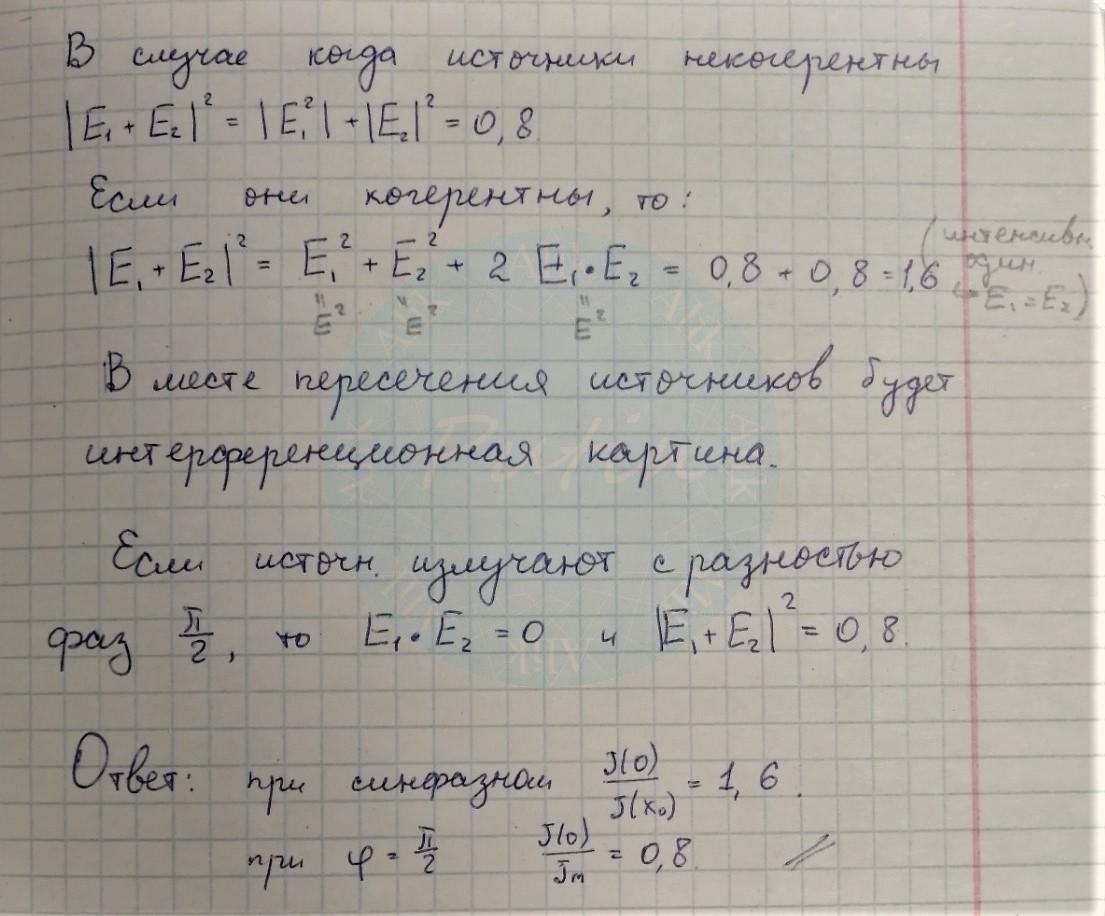 В случае когда источники некогерентны
|E₁ + E₂|² = |E₁²| + |E₂|² = 0,8
Если они когерентны, то:
|E₁ + E₂|² = E₁² + E₂² + 2 E₁·E₂ = 0,8 + 0,8 = 1,6 (интенсивн. один. → E₁ = E₂)
" E² " E² " E²
В месте пересечения источников будет
интерференционная картина.
Если источн. излучают с разностью
фаз π/2, то E₁·E₂ = 0 и |E₁ + E₂|² = 0,8.
Ответ: при синфазном J(0)/J(x₀) = 1,6.
при φ = π/2 J(0)/Jm = 0,8 //